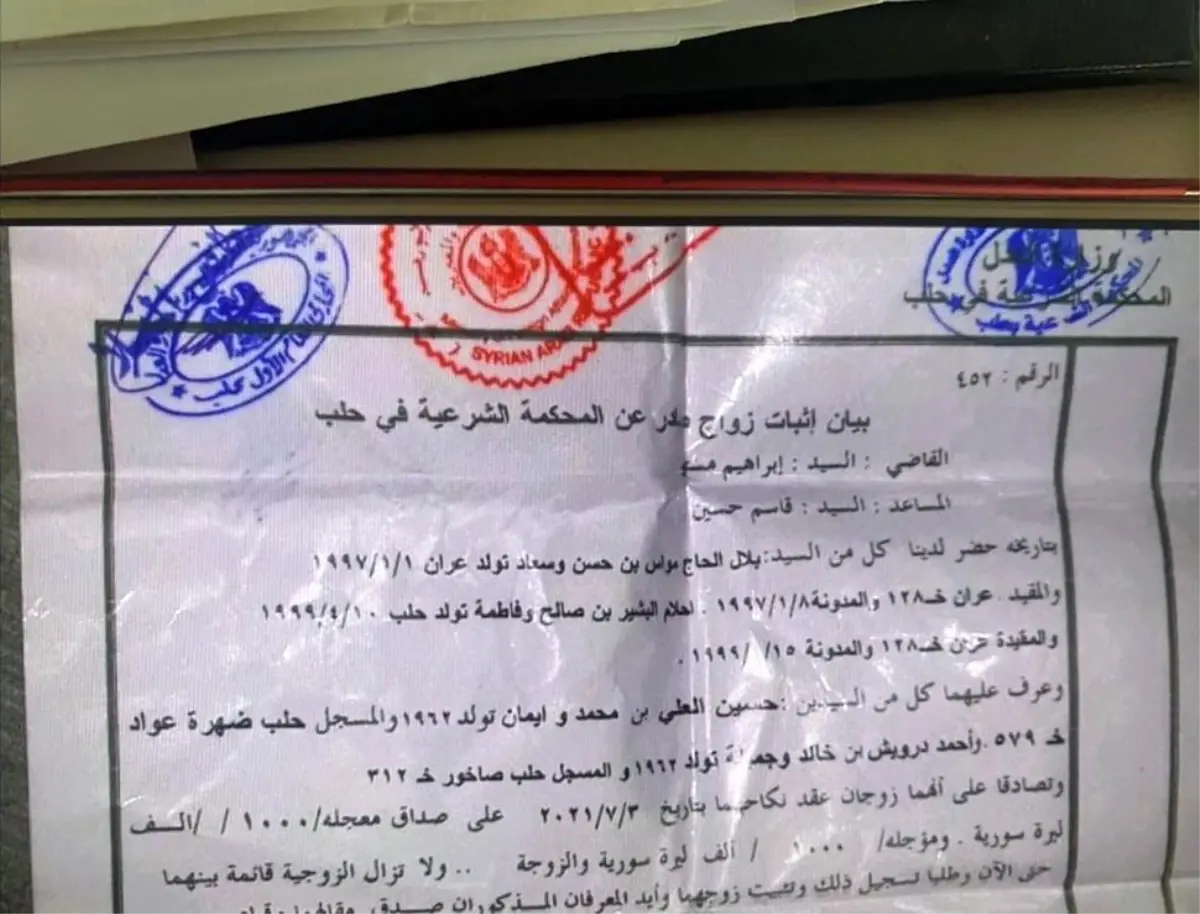 وزارة العدل
المحكمة الشرعية في حلب
SYRIAN ARAB
الرقم : ٤٥٢
بيان إثبات زواج صادر عن المحكمة الشرعية في حلب
القاضي : السيد : إبراهيم
المساعد : السيد : قاسم حسين
بتاريخه حضر لدينا كل من السيد: بلال الحاج مواس بن حسن وسعاد تولد عران ١٩٩٧/١/١
والمقيد . عران خـ١٢٨ والمدونة ١٩٩٧/١/٨ . احلام البشير بن صالح وفاطمة تولد حلب ١٩٩٩/٤/١٠
والمقيدة خـ١٢٨ والمدونة ١٥/ /١٩٩٩ .
وعرف عليهما كل من السيدين : حسين العلي بن محمد و ايمان تولد ١٩٦٢ والمسجل حلب ضهرة عواد
خـ ٥٧٩ .وأحمد درويش بن خالد وجميلة تولد ١٩٦٢ و المسجل حلب صاخور خـ ٣١٢
وتصادقا على أنهما زوجان عقد نكاحهما بتاريخ ٢٠٢١/٧/٣ على صداق معجله/١٠٠٠ / /الـف
ليرة سورية . ومؤجله/ ١٠٠٠ / ألف ليرة سورية والزوجة .. ولا تزال الزوجية قائمة بينهما
حتى الآن وطلبا تسجيل ذلك وتثبيت زوجهما وأيد المعرفان المذكوران صدق مقالهما